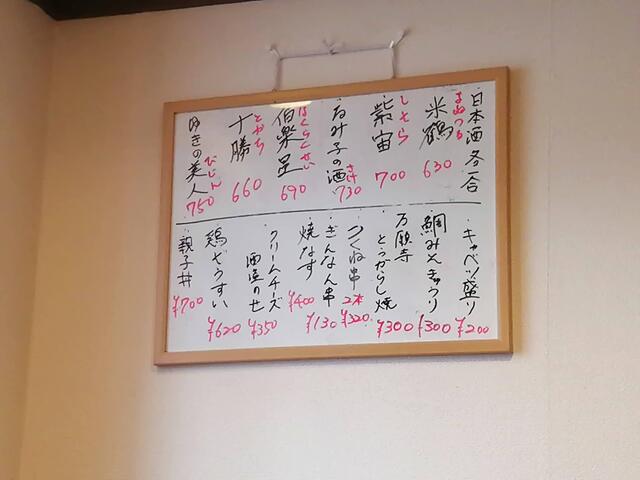 日本酒各一合
米鶴 よねつる 630
紫宙 しそら 700
るみ子の酒 さけ 730
伯楽星 はくらくせい 690
十勝 とかち 660
ゆきの美人 びじん 750
・キャベツ盛り ¥200
・鯛みそきゅうり ¥300
・万願寺とうがらし焼 ¥300
・つくね串 2本 ¥320
・ぎんなん串 ¥130
・焼なす ¥400
・クリームチーズ酒盗のせ ¥350
・鶏ぞうすい ¥620
・親子丼 ¥700